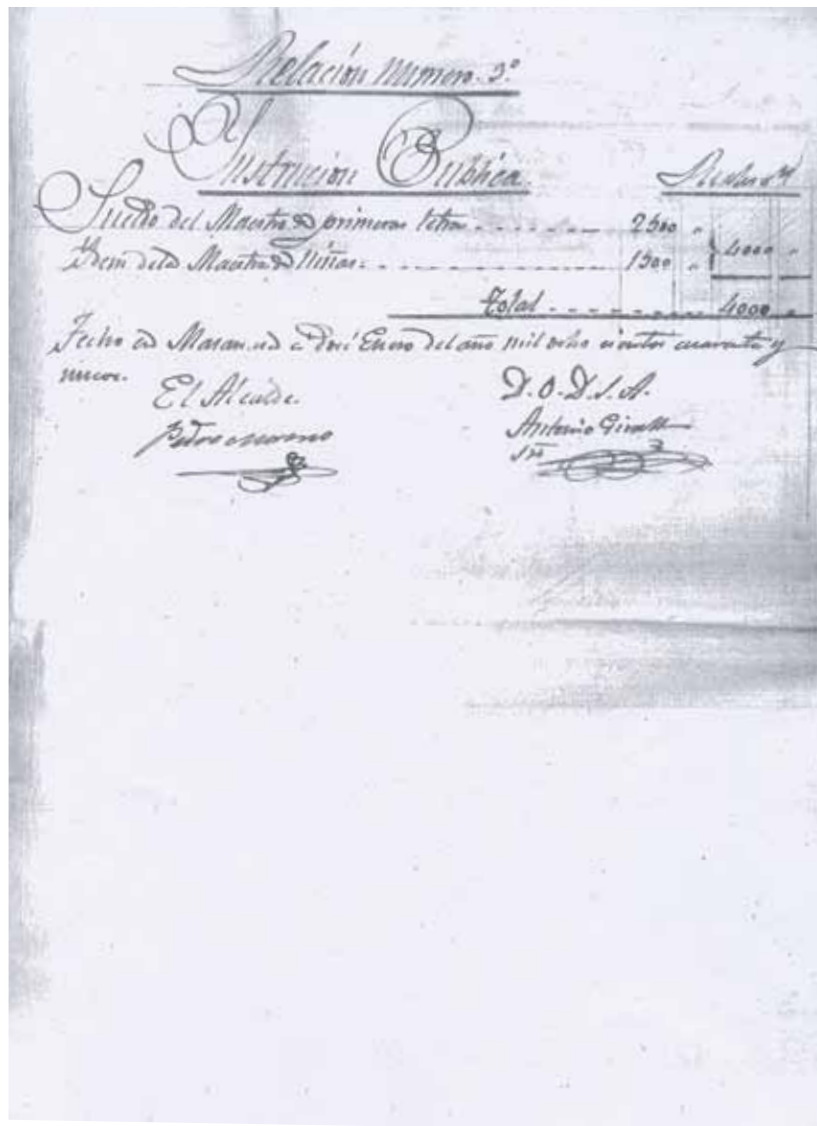 Relación numero 3º
Instrucion Publica Reales vn
Sueldo del Maestro de primeras letras 2500 "
Idem de la Maestra de Niñas 1500 " 4000 "
Total 4000 "
Fecho en a Enero del año mil ocho cientos cuarenta y
nueve.
El Alcalde. D. O. D. S. A.
Pedro Moreno Antonio
Srio